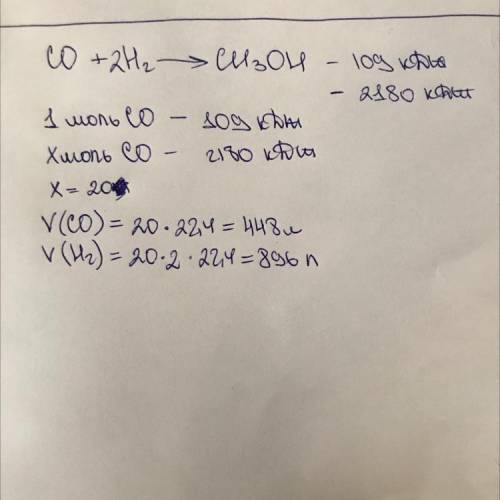 CO + 2H₂ ⟶ CH₃OH – 109 кДж
– 2180 кДж
1 моль CO – 109 кДж
X моль CO – 2180 кДж
X = 20
V(CO) = 20 · 22,4 = 448 л
V(H₂) = 20 · 2 · 22,4 = 896 л